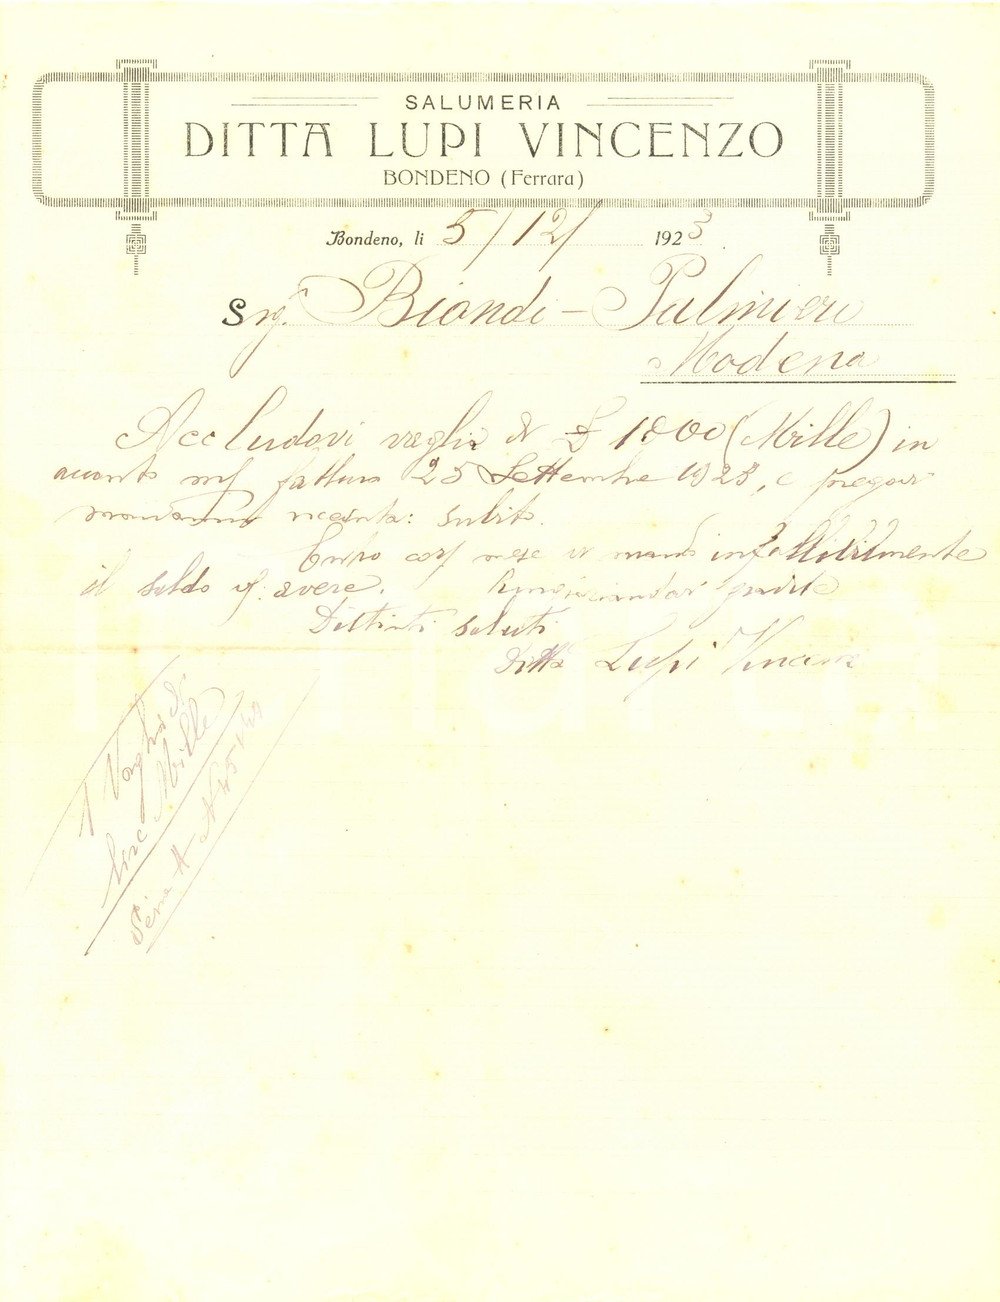 SALUMERIA
DITTA LUPI VINCENZO
BONDENO (Ferrara)
Bondeno, li 5/12/ 1923
Sig. Biondi - Palmieri
Modena
Accludovi vaglia di £ 1000 (Mille) in
acconto fattura 25 Settembre 1923, e pregovi
ricevuta: subito.
Entro mese vi mando infallibilmente
il saldo avere.
Distinti saluti
Ditta Lupi Vincenzo
1 Vaglia di
Lire Mille
Serie A N